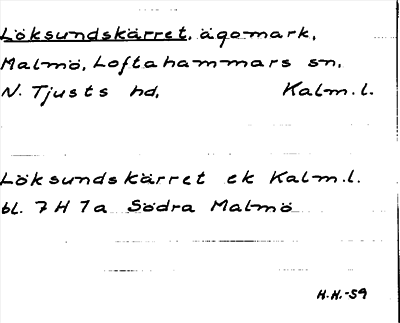 Löksundskärret, ägomark,
Malmö, Loftahammars sn,
N. Tjusts hd, Kalm. l.
Löksundskärret ek Kalm. l.
bl. 7 H 7a Södra Malmö
H.H.-59